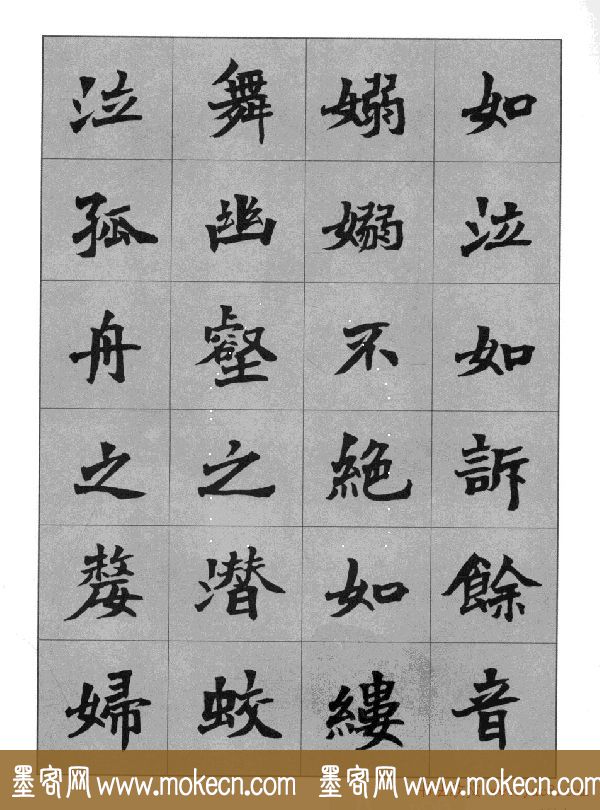 如泣如訴餘音
嫋嫋不絕如縷
舞幽壑之潛蛟
泣孤舟之嫠婦
墨客网 www.mokecn.com 墨客网 www.mokecn.com